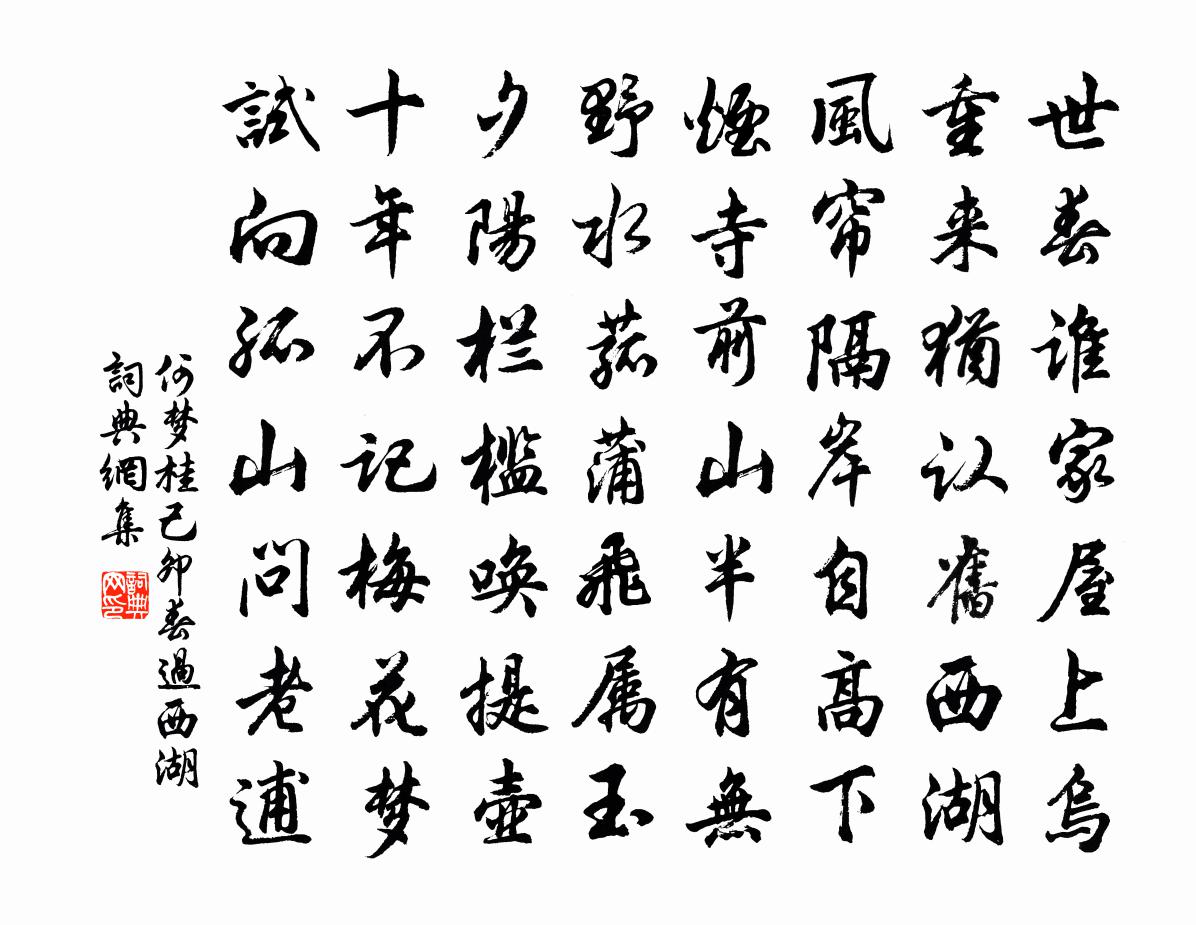 世春誰家屋上烏
重来猶认舊西湖
風帘隔岸自高下
煙寺前山半有無
野水菰蒲飛属玉
夕陽栏槛唤提壶
十年不记梅花梦
試向孤山问老逋
何梦桂己卯春過西湖
詞典網集
詞典
网印